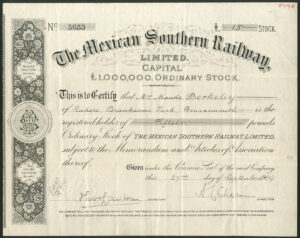 No 5653 £ 15 STOCK.
The Mexican Southern Railway,
LIMITED.
CAPITAL
£1,000,000, ORDINARY STOCK.
This is to Certify that Mrs Maude Berkeley
of Branksome Park, Bournemouth is the
registered holder of Fifteen pounds
Ordinary Stock of THE MEXICAN SOUTHERN RAILWAY, LIMITED,
subject to the Memorandum and Articles of Association
thereof.
Given under the Common Seal of the said Company
this 27th day of September